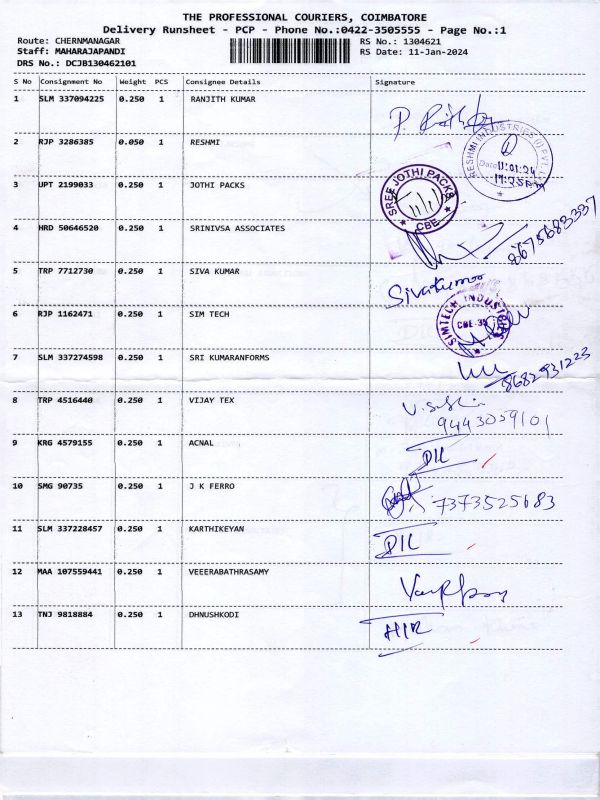 THE PROFESSIONAL COURIERS, COIMBATORE
Delivery Runsheet - PCP - Phone No.:0422-3505555 - Page No.:1
Route: CHERNMANAGAR RS No.: 1304621
Staff: MAHARAJAPANDI RS Date: 11-Jan-2024
DRS No.: DCJB130462101
S No Consignment No Weight PCS Consignee Details Signature
1 SLM 337094225 0.250 1 RANJITH KUMAR
2 RJP 3286385 0.050 1 RESHMI RESHMI INDUSTRIES (I) PVT. Date 11:01:24
3 UPT 2199033 0.250 1 JOTHI PACKS SREE JOTHI PACKS CBE
4 HRD 50646520 0.250 1 SRINIVSA ASSOCIATES 8675683337
5 TRP 7712730 0.250 1 SIVA KUMAR Sivakumar
6 RJP 1162471 0.250 1 SIM TECH SIMTECH INDUSTRIES CBE-35
7 SLM 337274598 0.250 1 SRI KUMARANFORMS 8682931223
8 TRP 4516440 0.250 1 VIJAY TEX 9443059101
9 KRG 4579155 0.250 1 ACNAL DIL
10 SMG 90735 0.250 1 J K FERRO 7373525683
11 SLM 337228457 0.250 1 KARTHIKEYAN DIL
12 MAA 107559441 0.250 1 VEEERABATHRASAMY
13 TNJ 9818884 0.250 1 DHNUSHKODI